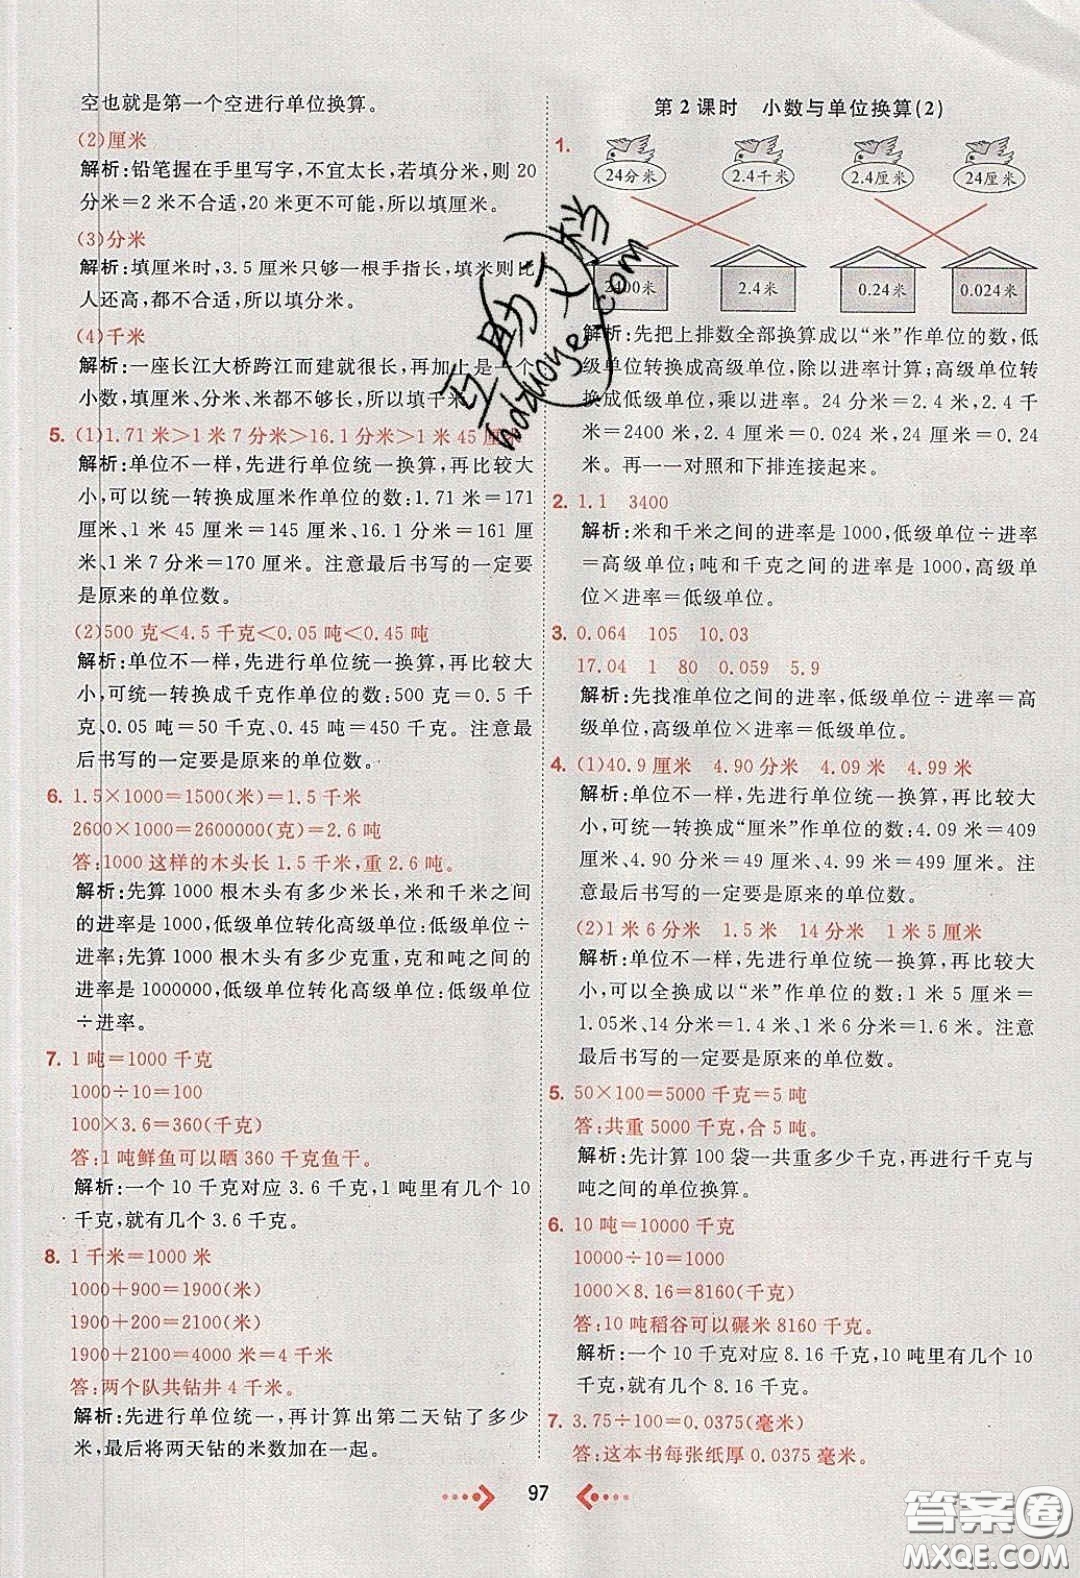 空也就是第一个空进行单位换算。
(2)厘米
解析:铅笔握在手里写字,不宜太长,若填分米,则 20
分米=2 米不合适,20 米更不可能,所以填厘米。
(3)分米
解析:填厘米时,3.5 厘米只够一根手指长,填米则比
人还高,所以填分米。
(4)千米
解析:一座长江大桥跨江而建就很长,再加上是一个
小数,填厘米、分米、米都不够长,所以填千米。
5. (1)1.71 米>1 米 7 分米>16.1 分米>1 米 45 厘米
解析:单位不一样,先进行单位统一换算,再比较大
小,可以统一转换成厘米作单位的数:1.71 米=171
厘米、1 米 45 厘米=145 厘米、16.1 分米=161 厘
米、1 米 7 分米=170 厘米。注意最后书写的一定要
是原来的单位数。
(2)500 克<4.5 千克<0.05 吨<0.45 吨
解析:单位不一样,先进行单位统一换算,再比较大
小,可统一转换成千克作单位的数:500 克=0.5 千
克、0.05 吨=50 千克、0.45 吨=450 千克。注意最
后书写的一定要是原来的单位数。
6. 1.5×1000=1500(米)=1.5 千米
2600×1000=2600000(克)=2.6 吨
答:1000 这样的木头长 1.5 千米,重 2.6 吨。
解析:先算 1000 根木头有多少米长,米和千米之间
的进率是 1000,低级单位转化高级单位:低级单位÷
进率;先算 1000 根木头有多少克重,克和吨之间的
进率是 1000000,低级单位转化高级单位:低级单位
÷进率。
7. 1 吨=1000 千克
1000÷10=100
100×3.6=360(千克)
答:1 吨鲜鱼可以晒 360 千克鱼干。
解析:一个 10 千克对应 3.6 千克,1 吨里有几个 10
千克,就有几个 3.6 千克。
8. 1 千米=1000 米
1000+900=1900(米)
1900+200=2100(米)
1900+2100=4000 米=4 千米
答:两个队共钻井 4 千米。
解析:先进行单位统一,再计算出第二天钻了多少
米,最后将两天钻的米数加在一起。
第 2 课时 小数与单位换算(2)
1.
24分米 2.4千米 2.4厘米 24厘米
2400米 2.4米 0.24米 0.024米
解析:先把上排数全部换算成以“米”作单位的数,低
级单位转换成高级单位,除以进率计算;高级单位转
换成低级单位,乘以进率。24 分米=2.4 米,2.4 千
米=2400 米,2.4 厘米=0.024 米,24 厘米=0.24
米。再一一对照和下排连接起来。
2. 1.1 3400
解析:米和千米之间的进率是 1000,低级单位÷进率
=高级单位;吨和千克之间的进率是 1000,高级单
位×进率=低级单位。
3. 0.064 105 10.03
17.04 1 80 0.059 5.9
解析:先找准单位之间的进率,低级单位÷进率=高
级单位,高级单位×进率=低级单位。
4. (1)40.9 厘米 4.90 分米 4.09 米 4.99 米
解析:单位不一样,先进行单位统一换算,再比较大
小,可统一转换成“厘米”作单位的数:4.09 米=409
厘米、4.90 分米=49 厘米、4.99 米=499 厘米。注
意最后书写的一定要是原来的单位数。
(2)1 米 6 分米 1.5 米 14 分米 1 米 5 厘米
解析:单位不一样,先进行单位统一换算,再比较大
小,可以全换成以“米”作单位的数:1 米 5 厘米=
1.05米、14 分米=1.4 米、1 米 6 分米=1.6 米。注意
最后书写的一定要是原来的单位数。
5. 50×100=5000 千克=5 吨
答:共重 5000 千克,合 5 吨。
解析:先计算 100 袋一共重多少千克,再进行千克与
吨之间的单位换算。
6. 10 吨=10000 千克
10000÷10=1000
1000×8.16=8160(千克)
答:10 吨稻谷可以碾米 8160 千克。
解析:一个 10 千克对应 8.16 千克,10 吨里有几个 10
千克,就有几个 8.16 千克。
7. 3.75÷100=0.0375(毫米)
答:这本书每张纸厚 0.0375 毫米。
97
互助文档
hdzuoye.com
答案圈
MXQE.COM